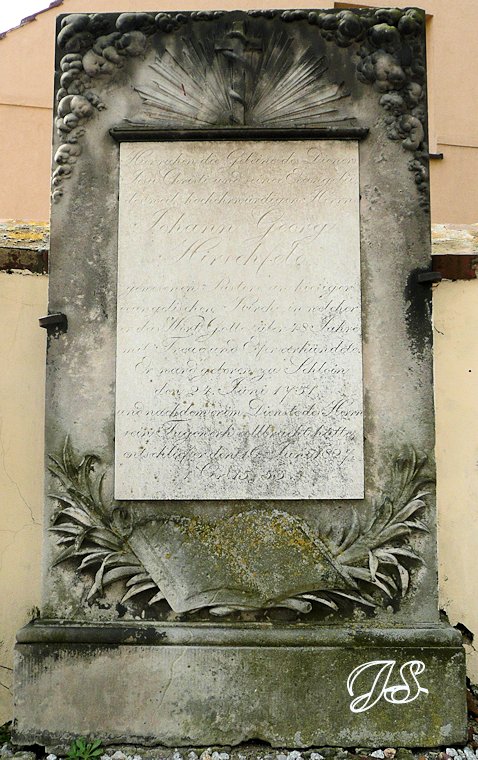 Hier ruhen die Gebeine des Dieners
Jesu Christi und seines Evangelii
der weil. hochehrwürdigen Herrn
Johann Georg
Hirschfeld
gewesenen Pastors an hiesiger
evangelischen Kirche, in welcher
er das Wort Gottes über 48 Jahre
mit Treue und Eifer verkündete.
Er ward geboren zu
den 24. Juni 1731
und nachdem er im Dienste des Herrn
sein Tagewerk vollbracht hatte
entschlief er den 16. Juni 1807
JS